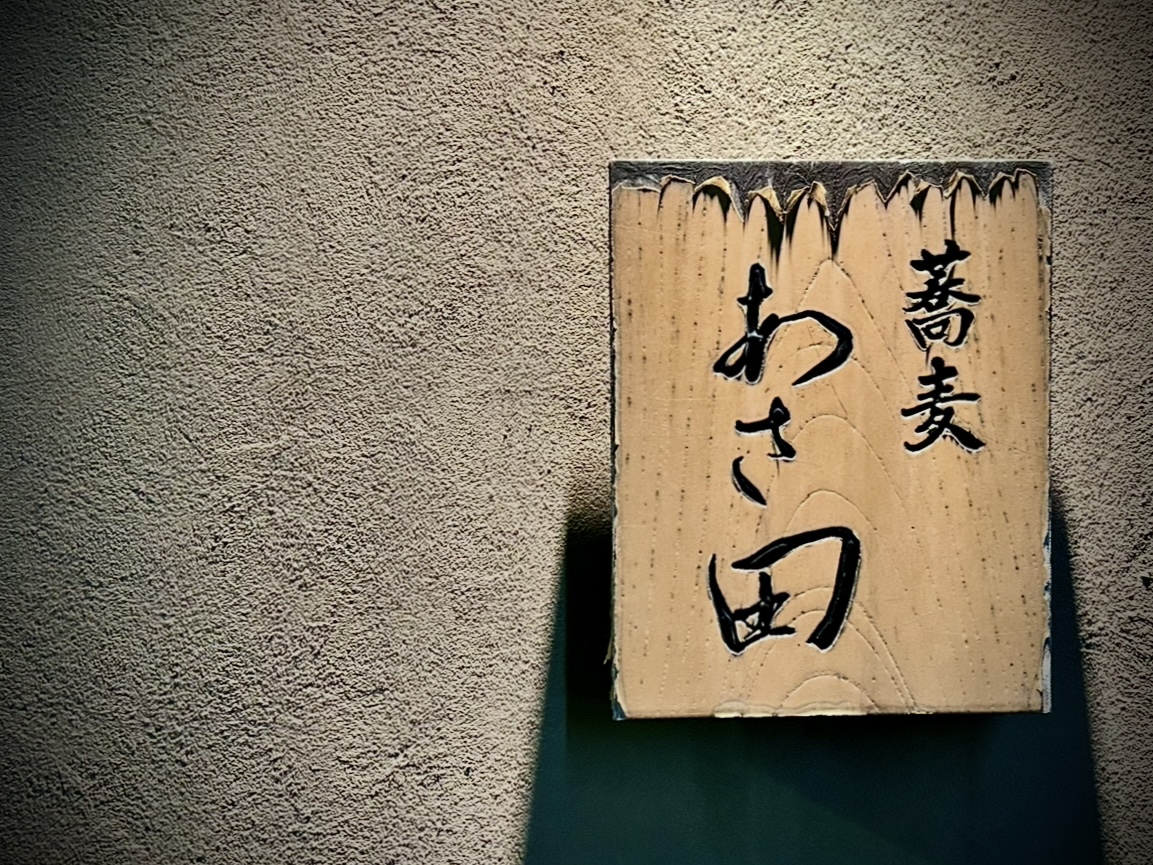 蕎麦
わさ田